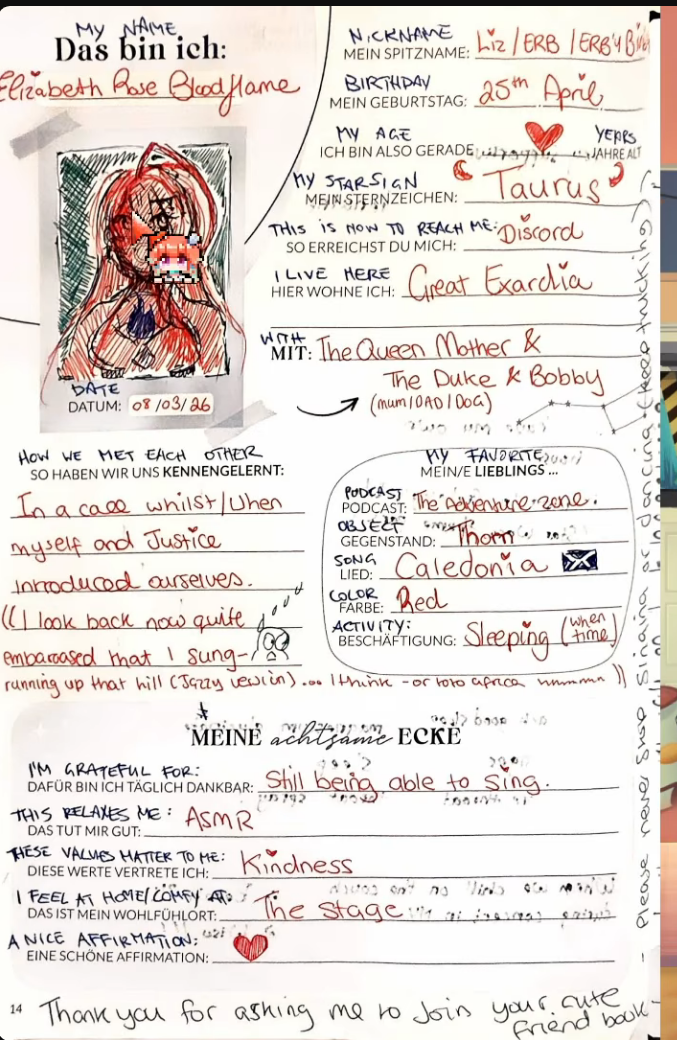 MY NAME
Das bin ich:
Elizabeth Rose Bloodflame
DATE
DATUM: 08/03/26
NICKNAME
MEIN SPITZNAME: Liz / ERB / ERB'y
BIRTHDAY
MEIN GEBURTSTAG: 25th April
MY AGE YEARS
ICH BIN ALSO GERADE JAHRE ALT
MY STARSIGN
MEIN STERNZEICHEN: Taurus
THIS IS HOW TO REACH ME:
SO ERREICHST DU MICH: Discord
I LIVE HERE
HIER WOHNE ICH: Great Exardia
WITH
MIT: The Queen Mother &
The Duke & Bobby
(mum/DAD/DOG)
HOW WE MET EACH OTHER
SO HABEN WIR UNS KENNENGELERNT:
In a call whilst/when
myself and Justice
introduced ourselves.
((I look back now quite
embarassed that I sung-
running up that hill (Jazzy version)... I think - or toto africa hmmmm ))
MY FAVORITE
MEIN/E LIEBLINGS ...
PODCAST
PODCAST: The Adventure zone.
OBJECT
GEGENSTAND: Thorn
SONG
LIED: Caledonia
COLOR
FARBE: Red
ACTIVITY:
BESCHÄFTIGUNG: Sleeping (when time)
MEINE achtsame ECKE
I'M GRATEFUL FOR:
DAFÜR BIN ICH TÄGLICH DANKBAR: Still being able to sing.
THIS RELAXES ME:
DAS TUT MIR GUT: ASMR
THESE VALUES MATTER TO ME:
DIESE WERTE VERTRETE ICH: Kindness
I FEEL AT HOME/COMFY AT:
DAS IST MEIN WOHLFÜHLORT: The stage
A NICE AFFIRMATION:
EINE SCHÖNE AFFIRMATION:
14
Thank you for asking me to join your cute
friend book
- Please never stop singing or dancing (keep trucking)